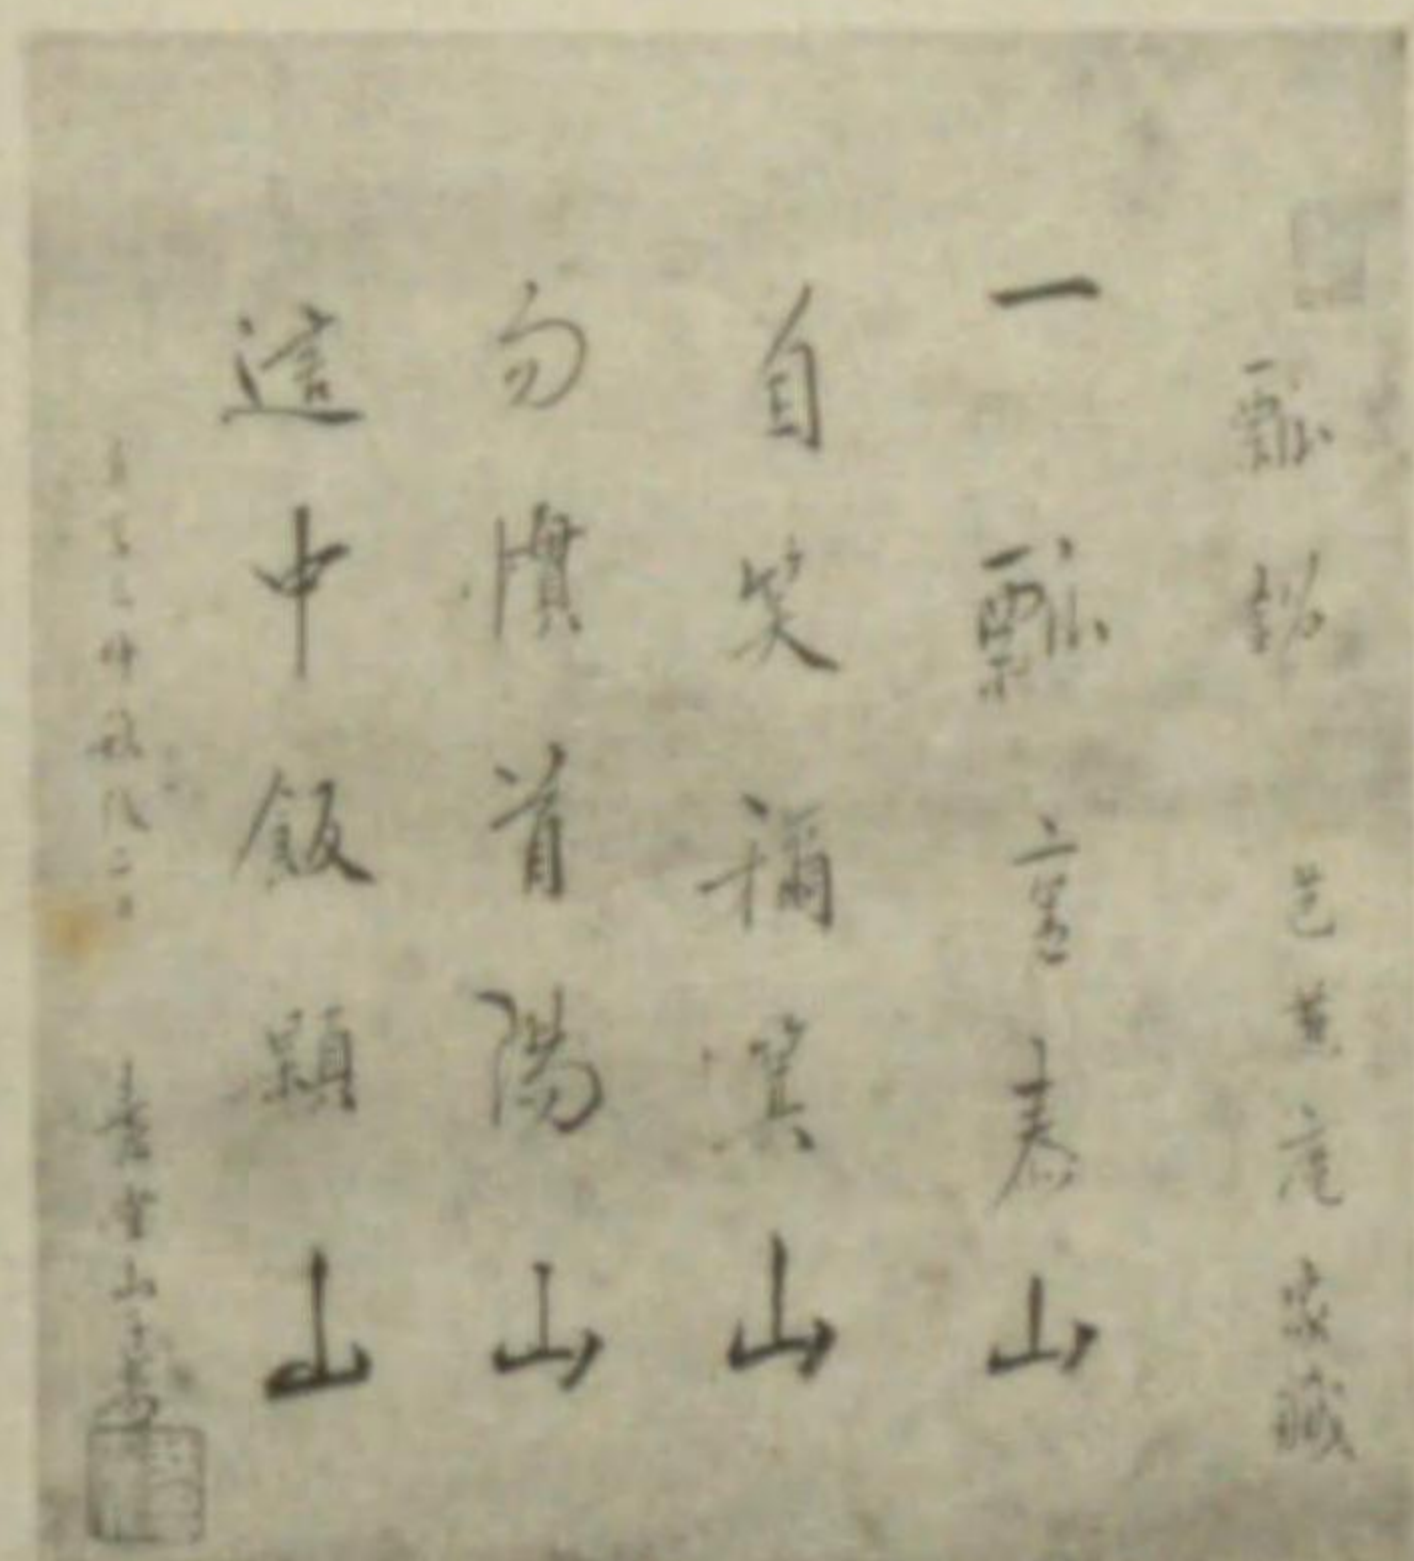 瓢銘 芭蕉庵家藏
一瓢重泰山
自笑稱箕山
勿慣首陽山
這中飯顆山
仲秋後二日 素堂山